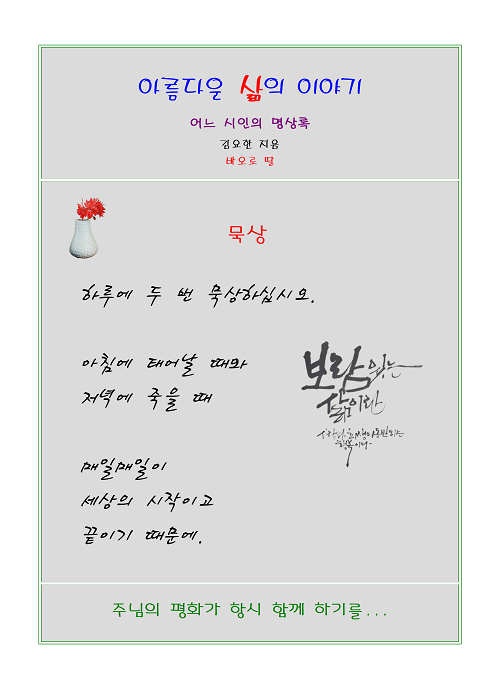 아름다운 삶의 이야기
어느 시인의 명상록
김요한 지음
바오로 딸
묵상
하루에 두 번 묵상하십시오.
아침에 태어날 때와
저녁에 죽을 때
매일매일이
세상의 시작이고
끝이기 때문에.
보람있는
삶이란
행복이다-
주님의 평화가 항시 함께 하기를...